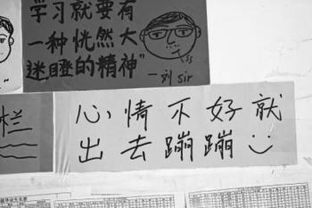 “学习就要有
一种恍然大
迷瞪的精神”
—刘sir
栏
心情不好就
出去蹦蹦